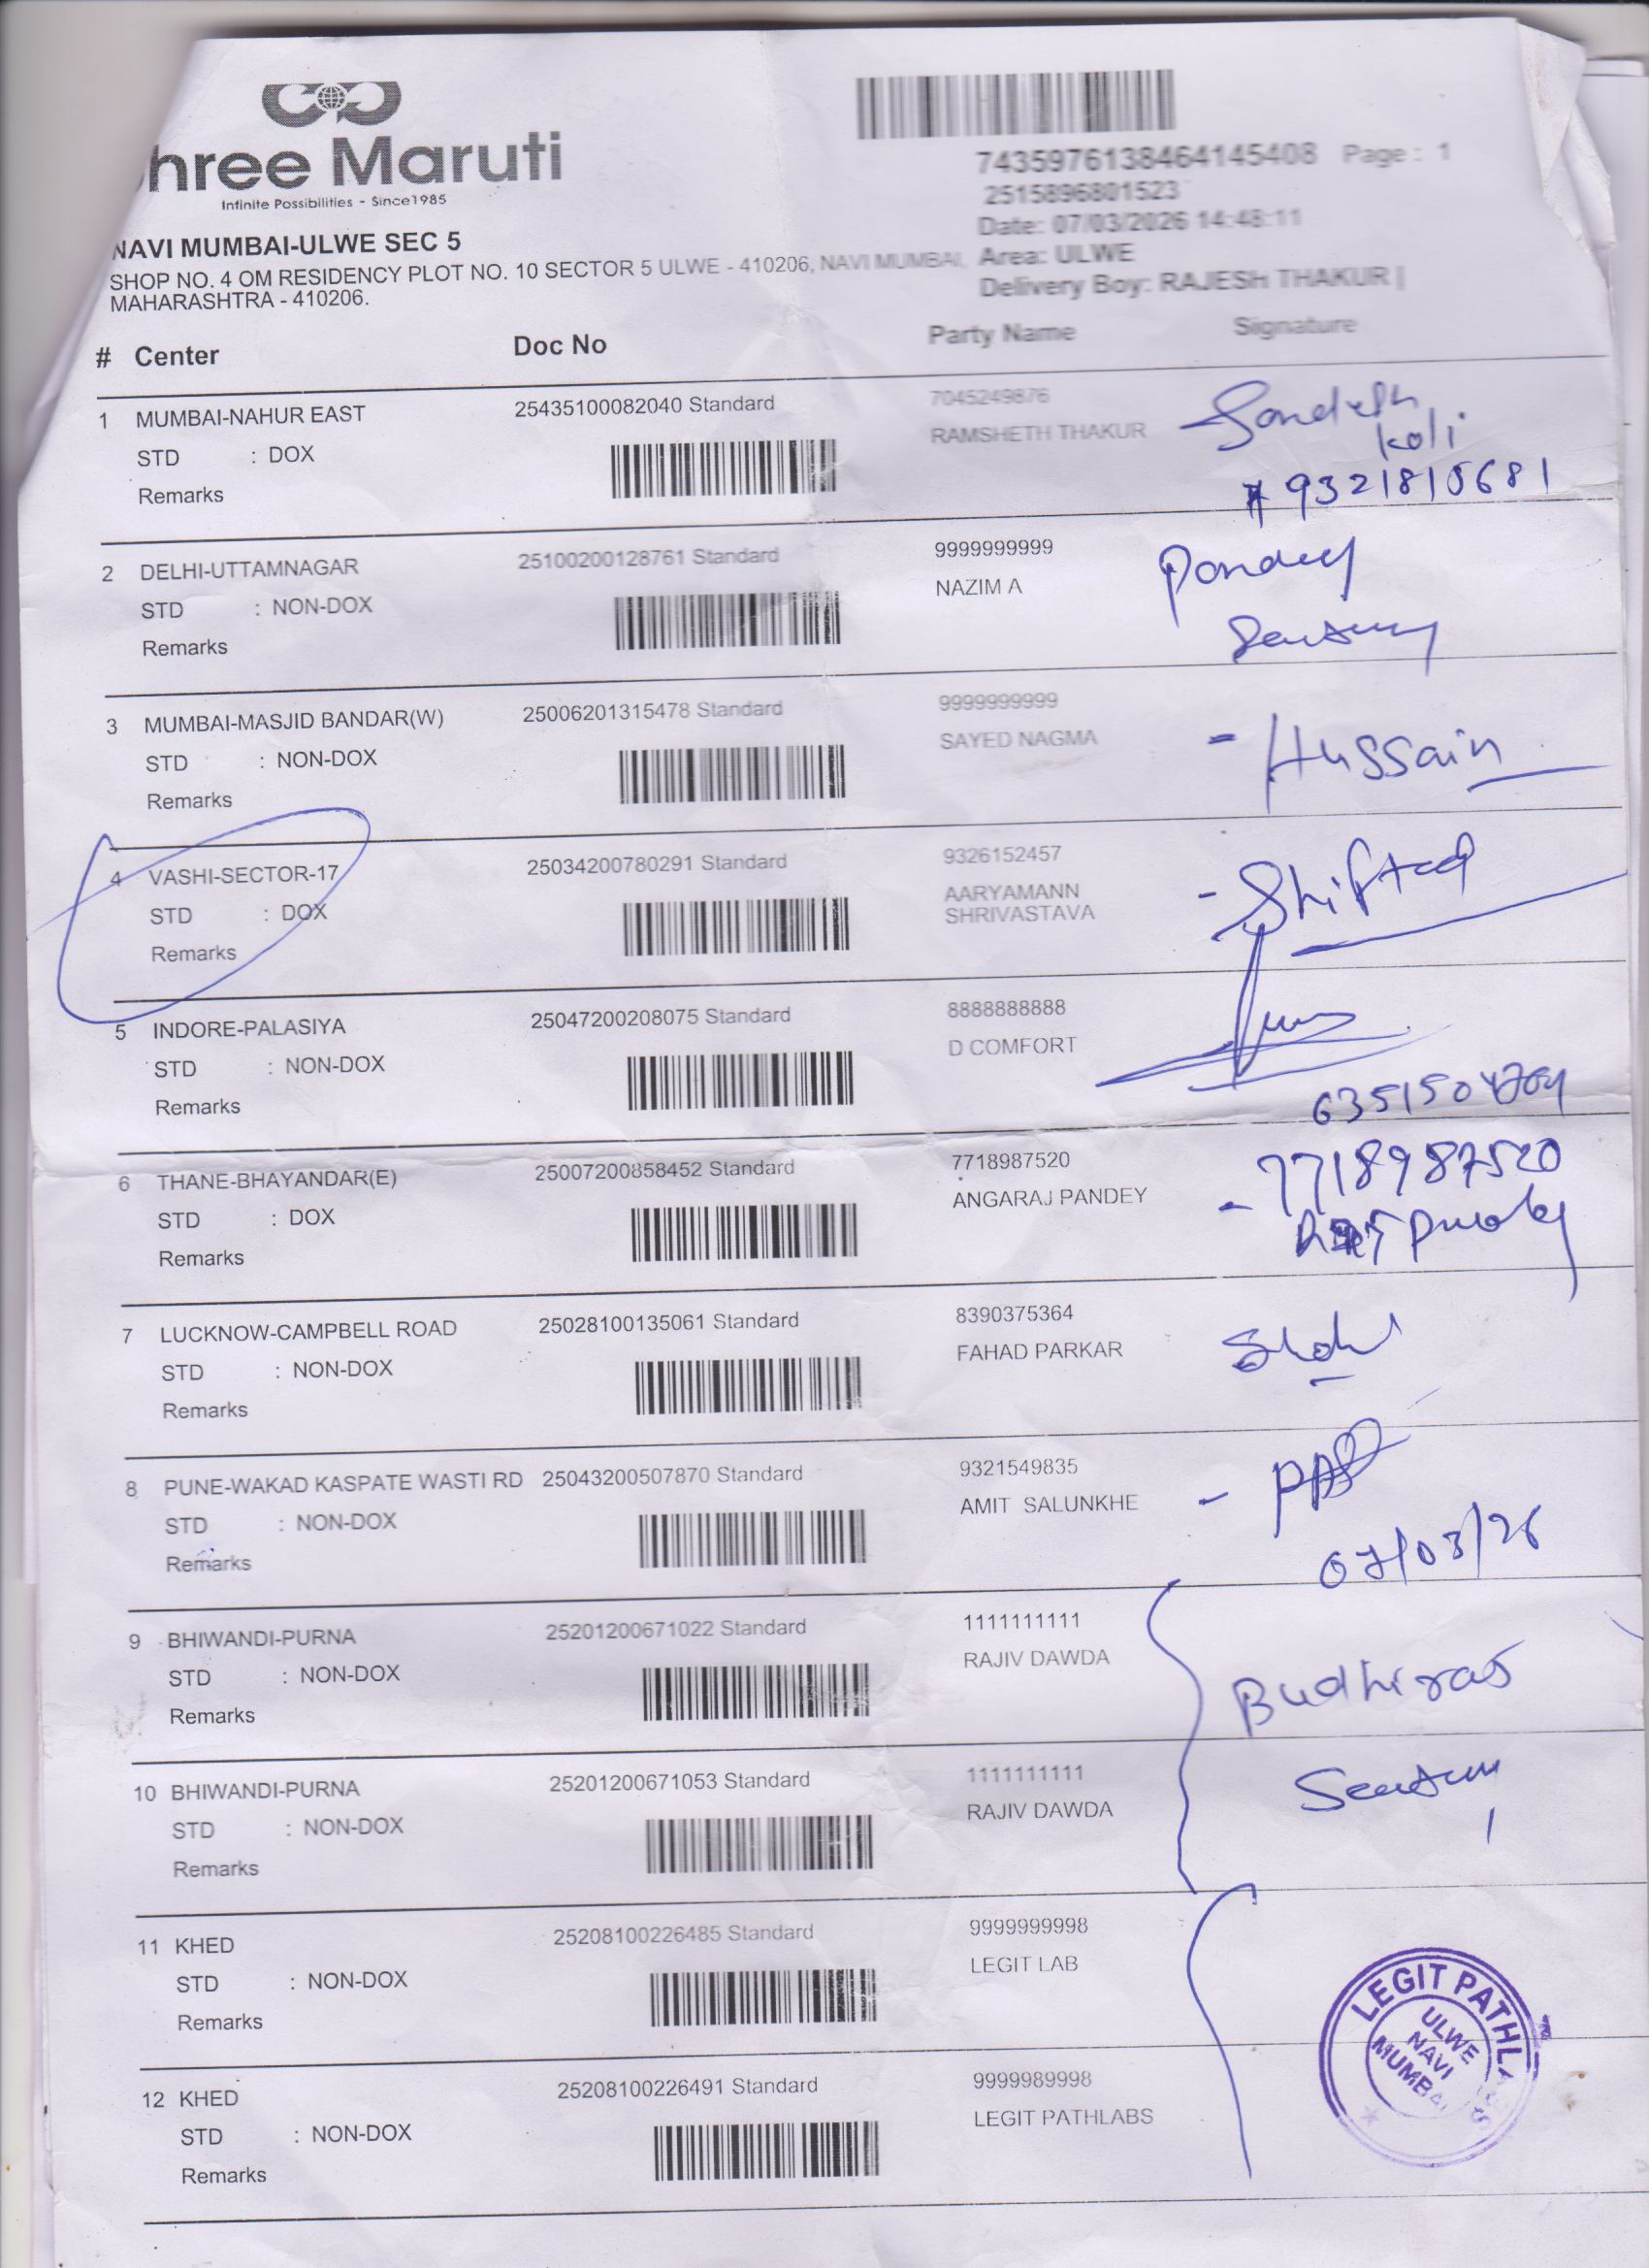 hree Maruti
Infinite Possibilities - Since1985
NAVI MUMBAI-ULWE SEC 5
SHOP NO. 4 OM RESIDENCY PLOT NO. 10 SECTOR 5 ULWE - 410206, NAVI MUMBAI,
MAHARASHTRA - 410206.
7435976138464145408 Page : 1
2515896801523
Date: 07/03/2026 14:48:11
Area: ULWE
Delivery Boy: RAJESH THAKUR |
# Center Doc No Party Name Signature
1 MUMBAI-NAHUR EAST 25435100082040 Standard 7045249876
STD : DOX RAMSHETH THAKUR
Remarks
koli
9321810681
2 DELHI-UTTAMNAGAR 25100200128761 Standard 9999999999
STD : NON-DOX NAZIM A
Remarks
Pandey
3 MUMBAI-MASJID BANDAR(W) 25006201315478 Standard 9999999999
STD : NON-DOX SAYED NAGMA
Remarks
- Hussain
4 VASHI-SECTOR-17 25034200780291 Standard 9326152457
STD : DOX AARYAMANN SHRIVASTAVA
Remarks
- Shifted
5 INDORE-PALASIYA 25047200208075 Standard 8888888888
STD : NON-DOX D COMFORT
Remarks
6 THANE-BHAYANDAR(E) 25007200858452 Standard 7718987520
STD : DOX ANGARAJ PANDEY
Remarks
- 7718987520
7 LUCKNOW-CAMPBELL ROAD 25028100135061 Standard 8390375364
STD : NON-DOX FAHAD PARKAR
Remarks
8 PUNE-WAKAD KASPATE WASTI RD 25043200507870 Standard 9321549835
STD : NON-DOX AMIT SALUNKHE
Remarks
07/03/26
9 BHIWANDI-PURNA 25201200671022 Standard 1111111111
STD : NON-DOX RAJIV DAWDA
Remarks
Budhiraj
10 BHIWANDI-PURNA 25201200671053 Standard 1111111111
STD : NON-DOX RAJIV DAWDA
Remarks
11 KHED 25208100226485 Standard 9999999998
STD : NON-DOX LEGIT LAB
Remarks
LEGIT PATHLABS
ULWE
NAVI
MUMBAI
12 KHED 25208100226491 Standard 9999989998
STD : NON-DOX LEGIT PATHLABS
Remarks